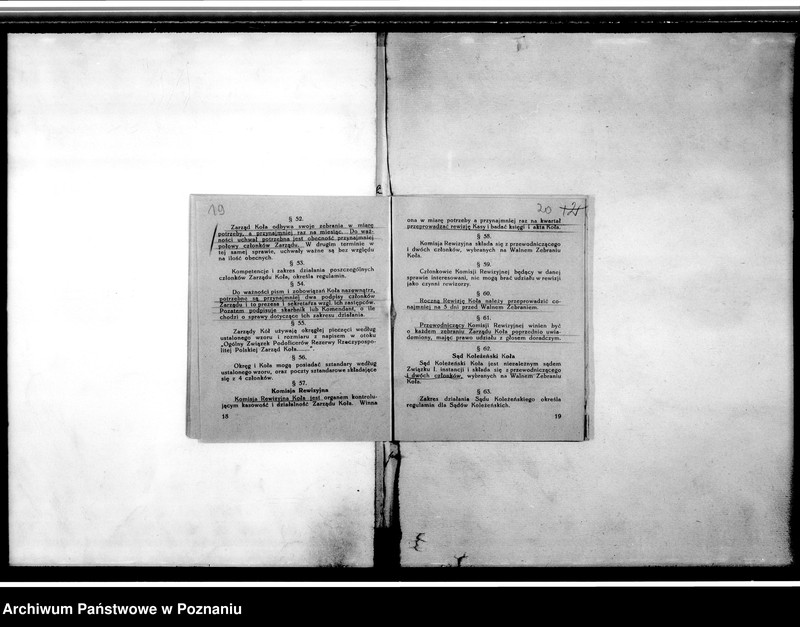 19
§ 52.
Zarząd Koła odbywa swoje zebrania w miarę
potrzeby, a przynajmniej raz na miesiąc. Do waż-
ności uchwał potrzebna jest obecność przynajmniej
połowy członków Zarządu. W drugim terminie w
tej samej sprawie, uchwały ważne są bez względu
na ilość obecnych.
§ 53.
Kompetencje i zakres działania poszczególnych
członków Zarządu Koła, określa regulamin.
§ 54.
Do ważności pism i zobowiązań Koła nazewnątrz,
potrzebne są przynajmniej dwa podpisy członków
Zarządu i to prezesa i sekretarza wzgl. ich zastępców.
Pozatem podpisuje skarbnik lub Komendant, o ile
chodzi o sprawy dotyczące ich zakresu działania.
§ 55.
Zarządy Kół używają okrągłej pieczęci według
ustalonego wzoru i rozmiaru z napisem w otoku
„Ogólny Związek Podoficerów Rezerwy Rzeczypospo-
litej Polskiej Zarząd Koła......".
§ 56.
Okręg i Koła mogą posiadać sztandary według
ustalonego wzoru, oraz poczty sztandarowe składające
się z 4 członków.
§ 57.
Komisja Rewizyjna
Komisja Rewizyjna Koła jest organem kontrolu-
jącym kasowość i działalność Zarządu Koła. Winna
18
20 21
ona w miarę potrzeby a przynajmniej raz na kwartał
przeprowadzać rewizję Kasy i badać księgi i akta Koła.
§ 58.
Komisja Rewizyjna składa się z przewodniczącego
i dwóch członków, wybranych na Walnem Zebraniu
Koła.
§ 59.
Członkowie Komisji Rewizyjnej będący w danej
sprawie interesowani, nie mogą brać udziału w rewizji
jako czynni rewizorzy.
§ 60.
Roczną Rewizję Koła należy przeprowadzić co-
najmniej na 5 dni przed Walnem Zebraniem.
§ 61.
Przewodniczący Komisji Rewizyjnej winien być
o każdem zebraniu Zarządu Koła poprzednio uwia-
domiony, mając prawo udziału z głosem doradczym.
§ 62.
Sąd Koleżeński Koła
Sąd Koleżeński Koła jest niezależnym sądem
Związku I. instancji i składa się z przewodniczącego
i dwóch członków, wybranych na Walnem Zebraniu
Koła.
§ 63.
Zakres działania Sądu Koleżeńskiego określa
regulamin dla Sądów Koleżeńskich.
19
Archiwum Państwowe w Poznaniu